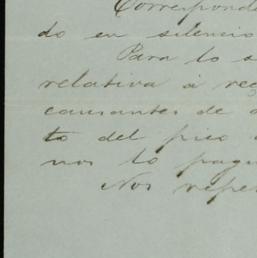 Correspond
do en silencio
Para lo s
relativa á reg
causantes de
to del pico
nos lo pagu
Nos repet